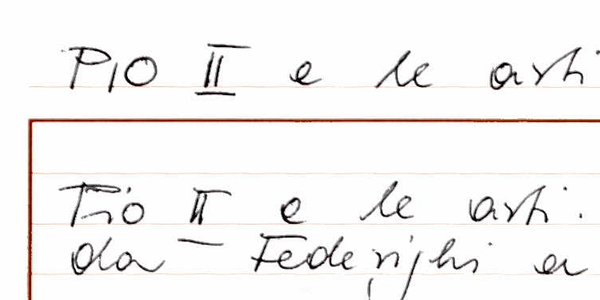 PIO II e le arti
Pio II e le arti.
da Federighi a